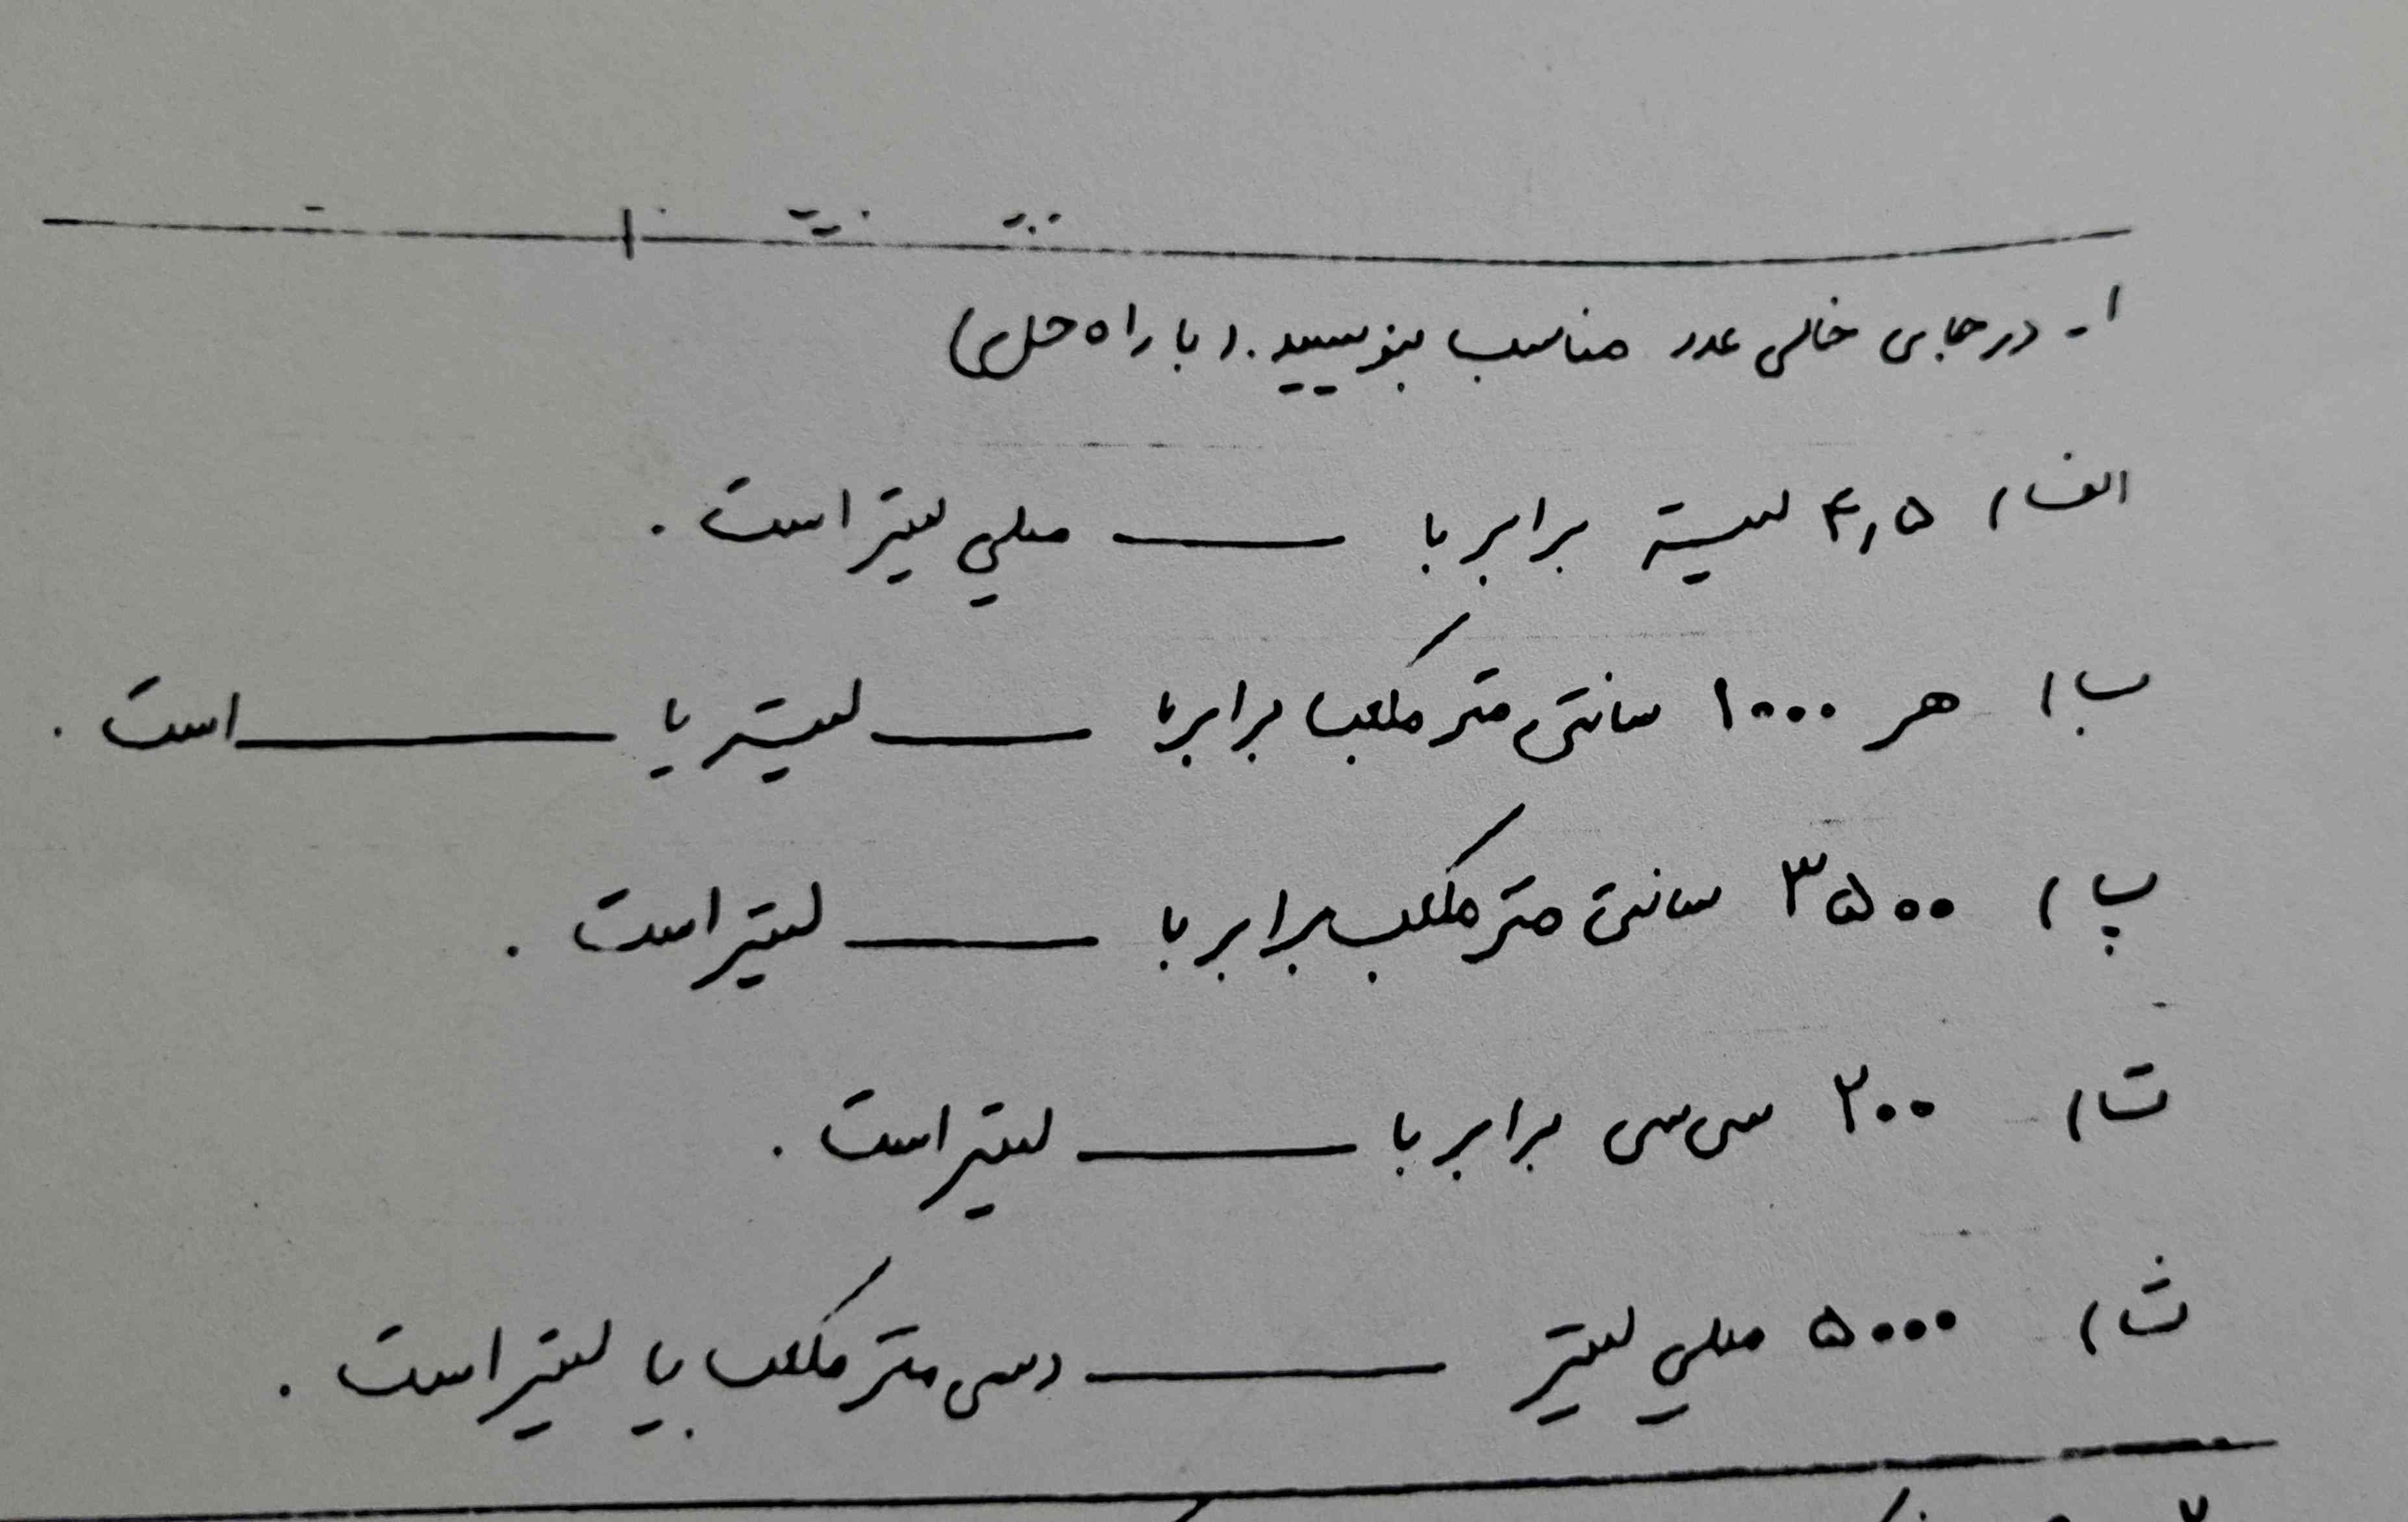 ۱- در جای خالی عدد مناسب بنویسید. (با راه حل)
الف) ۴٫۵ لیتر برابر با ــــــ میلی لیتر است.
ب) هر ۱۰۰۰ سانتی متر مکعب برابر با ــــــ لیتر یا ــــــ است.
پ) ۳۵۰۰ سانتی متر مکعب برابر با ــــــ لیتر است.
ت) ۲۰۰ سی سی برابر با ــــــ لیتر است.
ث) ۵۰۰۰ میلی لیتر ــــــ دسی متر مکعب یا لیتر است.